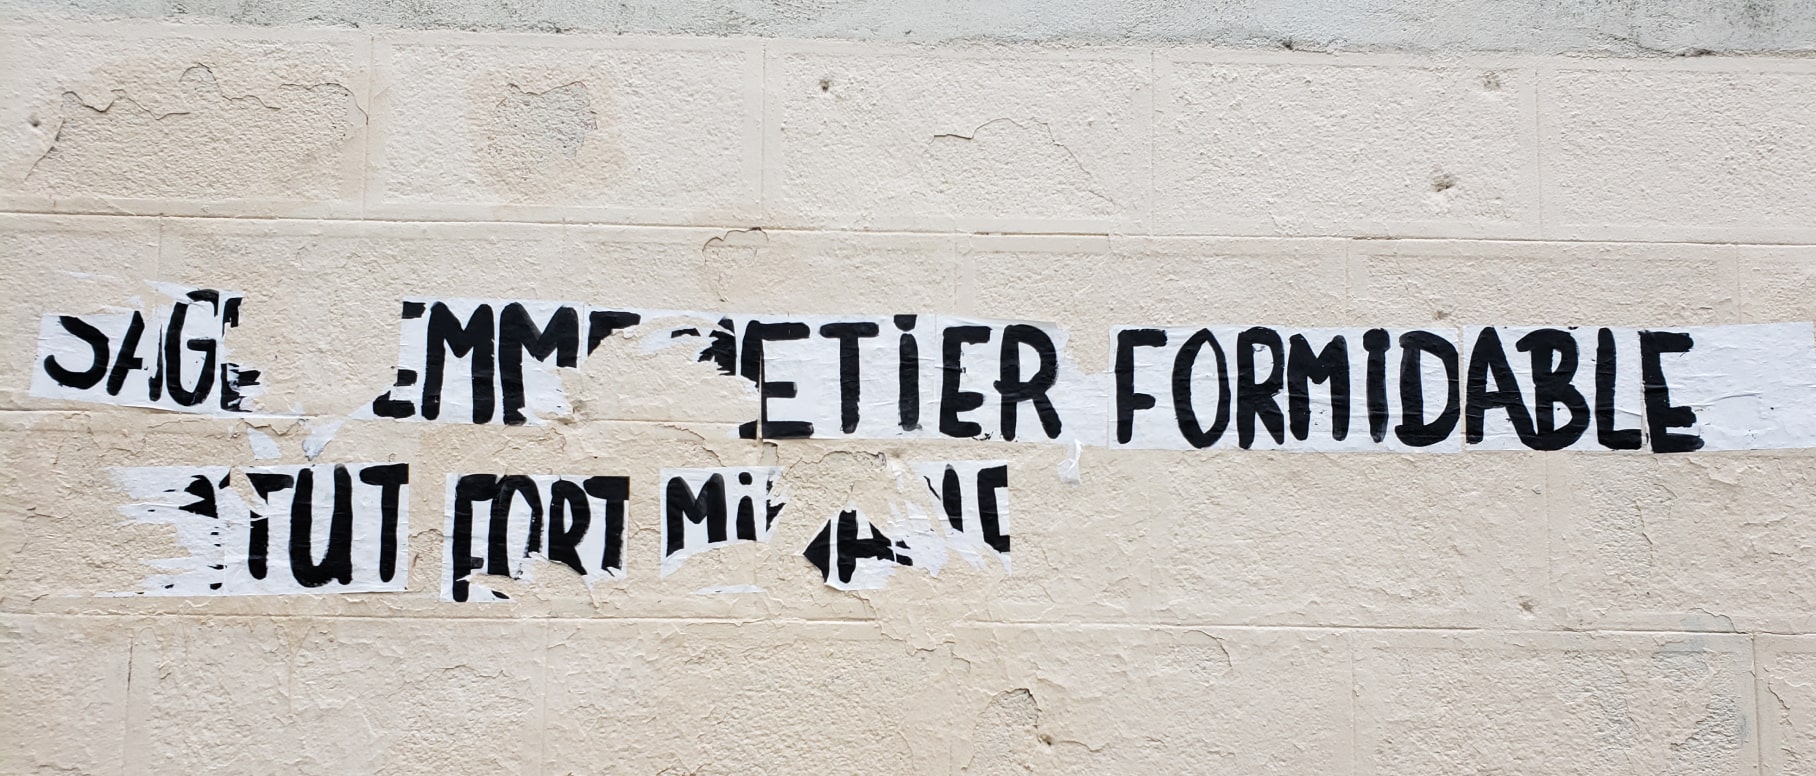 SAGE EMME METIER FORMIDABLE
TUT FORT